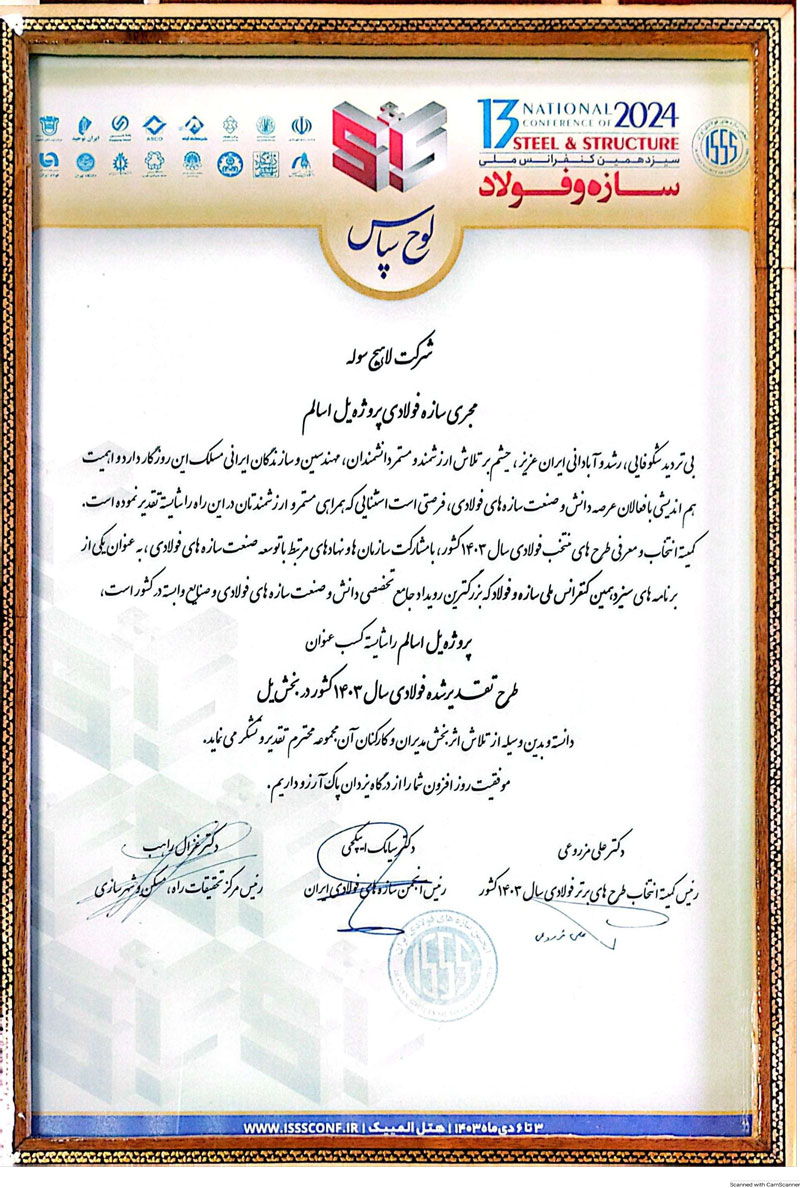 13 NATIONAL CONFERENCE OF 2024
STEEL & STRUCTURE
سیزدهمین کنفرانس ملی
سازه و فولاد
ISSS
SiS
ASCO
ایران توحید
لوح سپاس
شرکت لاهیج سوله
مجری سازه فولادی پروژه پل اسالم
بی تردید شکوفایی، رشد و آبادانی ایران عزیز، چشم بر تلاش ارزشمند و مستمر دانشمندان، مهندسین و سازندگان ایرانی مسلک این روزگار دارد و اهمیت
هم اندیشی با فعالان عرصه دانش و صنعت سازه های فولادی، فرصتی است استثنایی که همراهی مستمر و ارزشمندتان در این راه را شایسته تقدیر نموده است.
کمیته انتخاب و معرفی طرح های منتخب فولادی سال ۱۴۰۳ کشور، با مشارکت سازمان ها و نهادهای مرتبط با توسعه صنعت سازه های فولادی، به عنوان یکی از
برنامه های سیزدهمین کنفرانس ملی سازه و فولاد که بزرگترین رویداد جامع تخصصی دانش و صنعت سازه های فولادی و صنایع وابسته در کشور است،
پروژه پل اسالم را شایسته کسب عنوان
طرح تقدیر شده فولادی سال ۱۴۰۳ کشور در بخش پل
دانسته و بدین وسیله از تلاش اثربخش مدیران و کارکنان آن مجموعه محترم تقدیر و تشکر می نماید.
موفقیت روز افزون شما را از درگاه یزدان پاک آرزو داریم.
دکتر علی مزروعی
رئیس کمیته انتخاب طرح های برتر فولادی سال ۱۴۰۳ کشور
علی مزروعی
دکتر سیامک اپیکچی
رئیس انجمن سازه های فولادی ایران
دکتر غزال راهب
رئیس مرکز تحقیقات راه، مسکن و شهرسازی
انجمن سازه های فولادی ایران
ISSS
۳ تا ۶ دی ماه ۱۴۰۳ | هتل المپیک | WWW.ISSSCONF.IR
Scanned with CamScanner